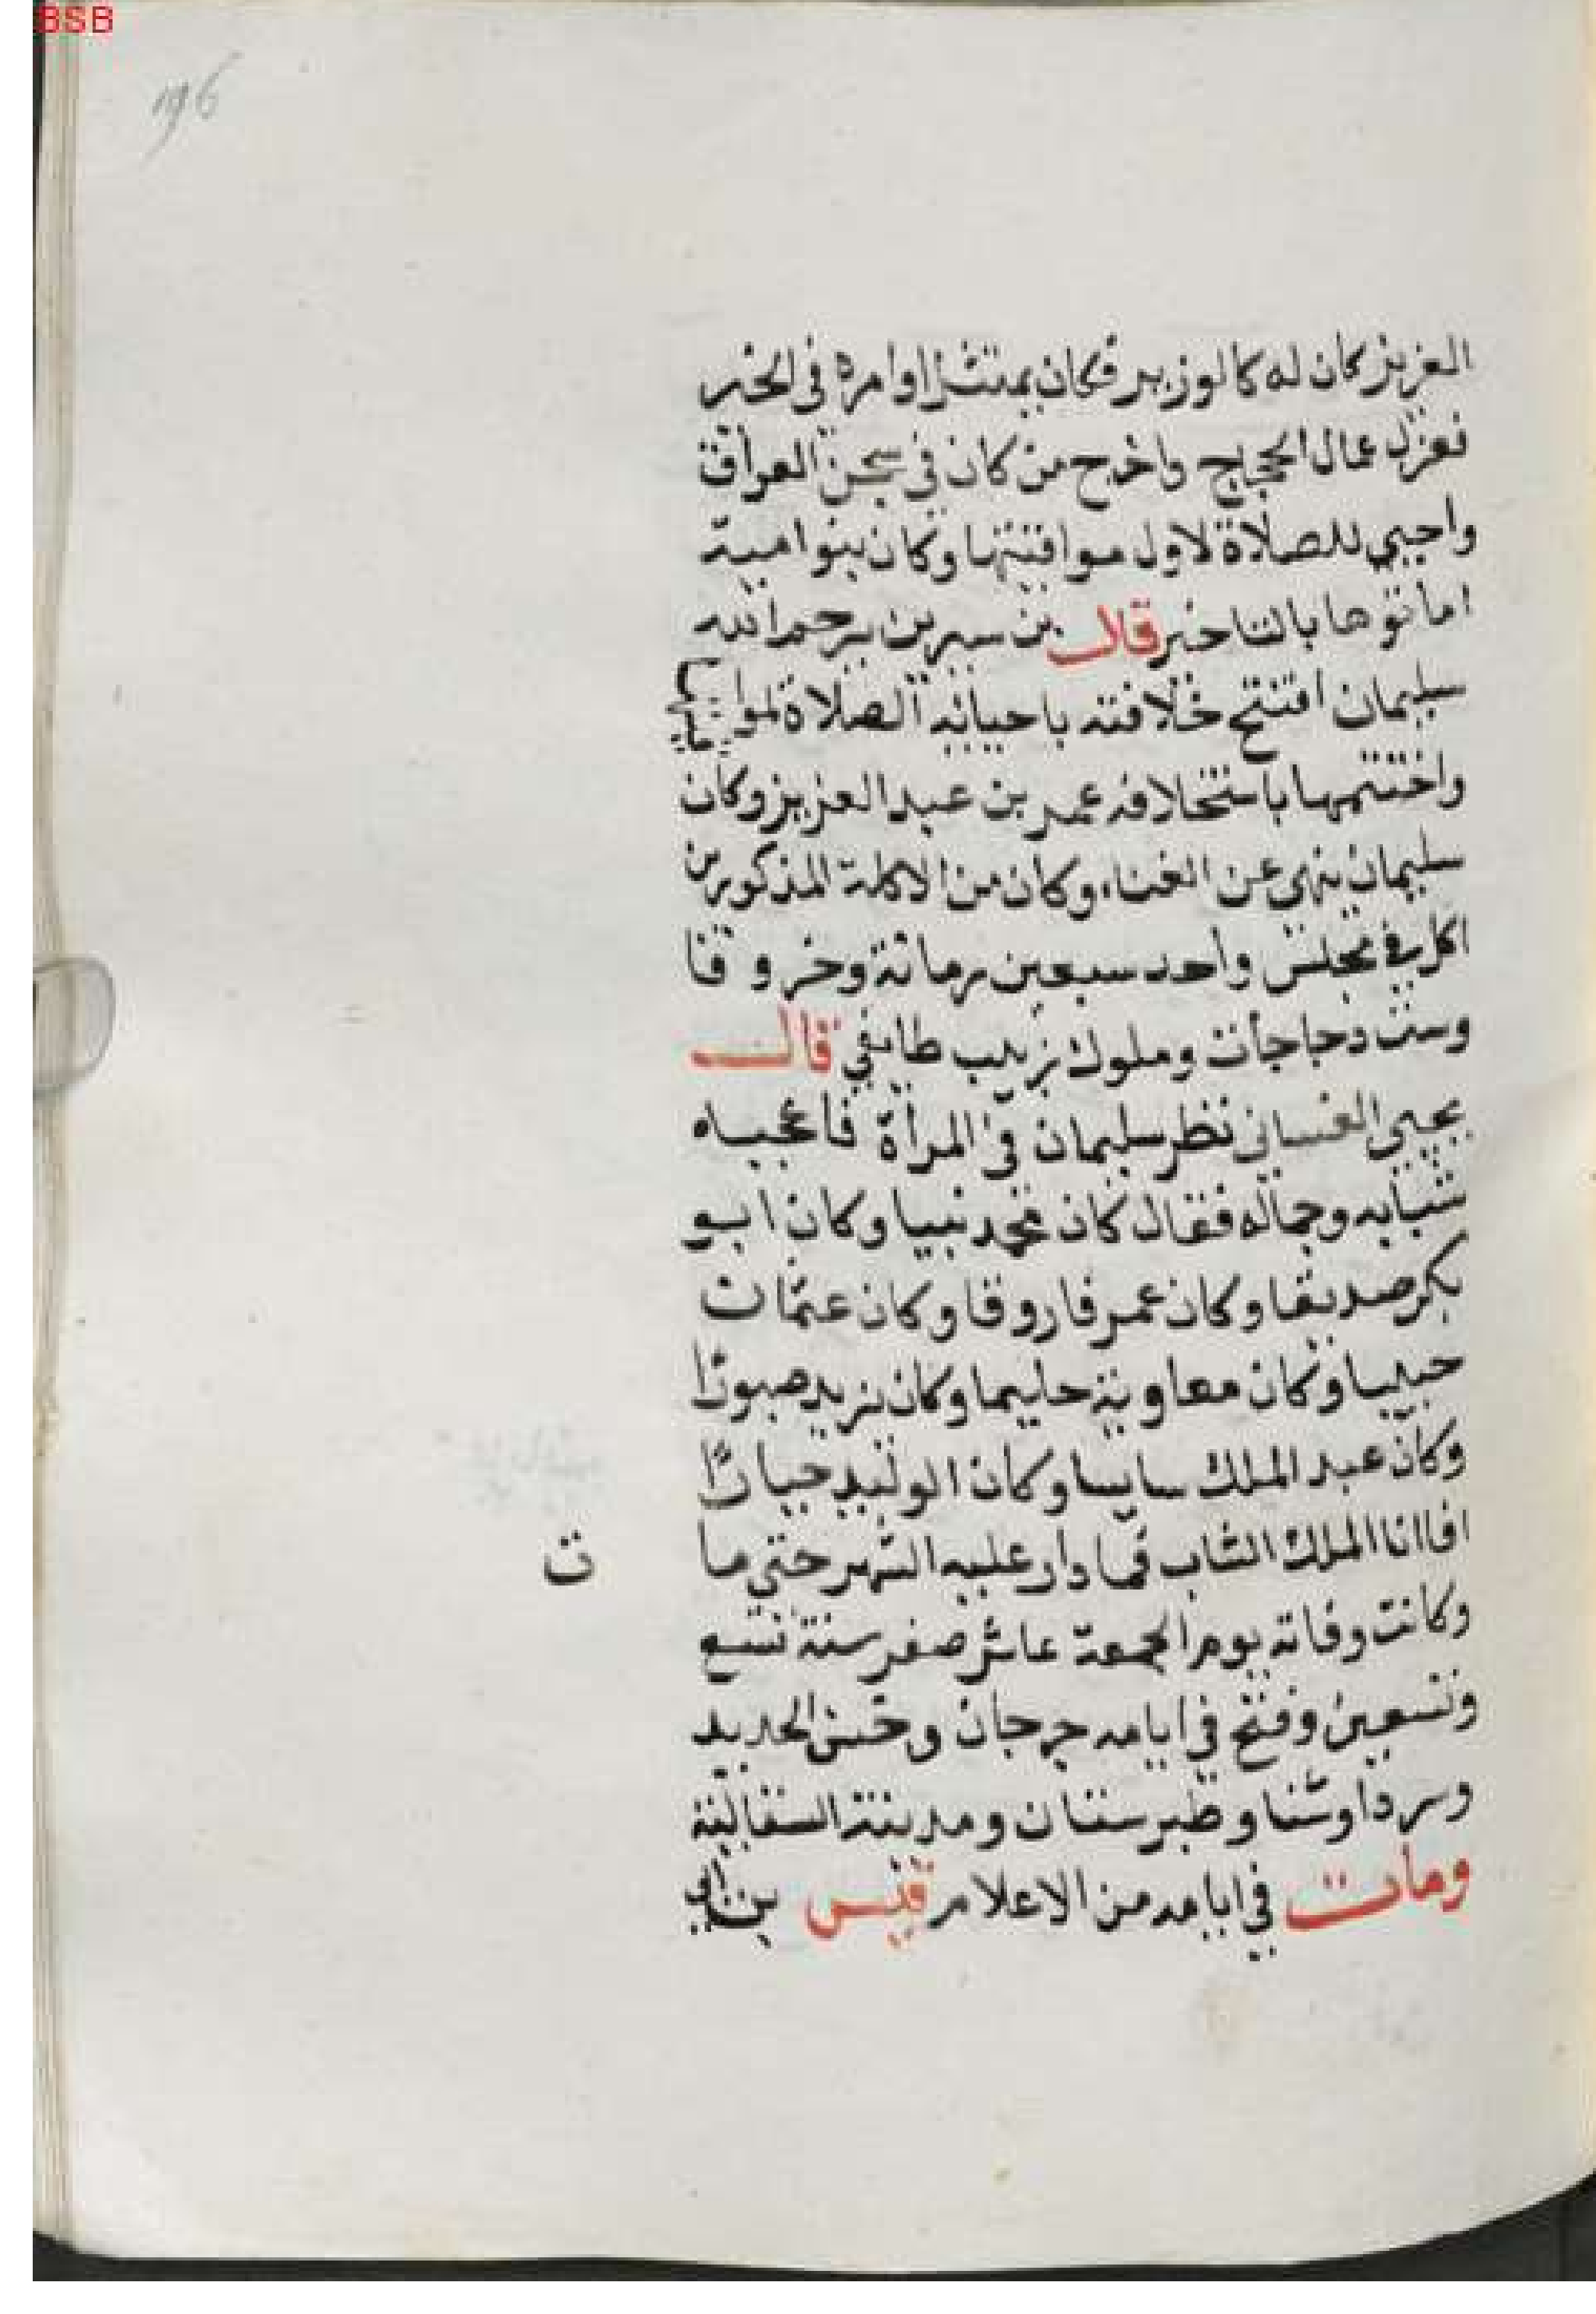 BSB
196
العزيز كان له كالوزير فكان يمتثل اوامره في الخير
فعزل عمال الحجاج واخرج من كان في سجن العراق
واحيي للصلاة لاول مواقتتها وكان بنوا امية
اماتوها بالتاخير قال بن سيرين يرحم الله
سليمان افتتح خلافته باحيائه الصلاة لمواقيتها
واختتمها باستخلافه عمر بن عبد العزيز وكان
سليمان ينهى عن الغناء وكان من الاكلة المذكورين
اكل في مجلس واحد سبعين رمانة وخروفا
وست دجاجات وملوك زبيب طايفي قال
يحيي الغساني نظر سليمان في المرأة فاعجبه
شبابه وجماله فقال كان محمد نبيا وكان ابو
بكر صديقا وكان عمر فاروقا وكان عثمان
حبيبا وكان معاوية حليما وكان يزيد صبورًا
وكان عبد الملك سايسا وكان الوليد جبارًا
افاانا الملك الشاب فما دار عليه الشهر حتي ما ت
وكانت وفاته يوم الجمعة عاشر صفر سنة تسع
وتسعين وفتح في ايامه جرجان وحسن الحديد
وسرداوسنا وطبرستان ومدينة السقالية
ومات في ايامه من الاعلام قيس بن